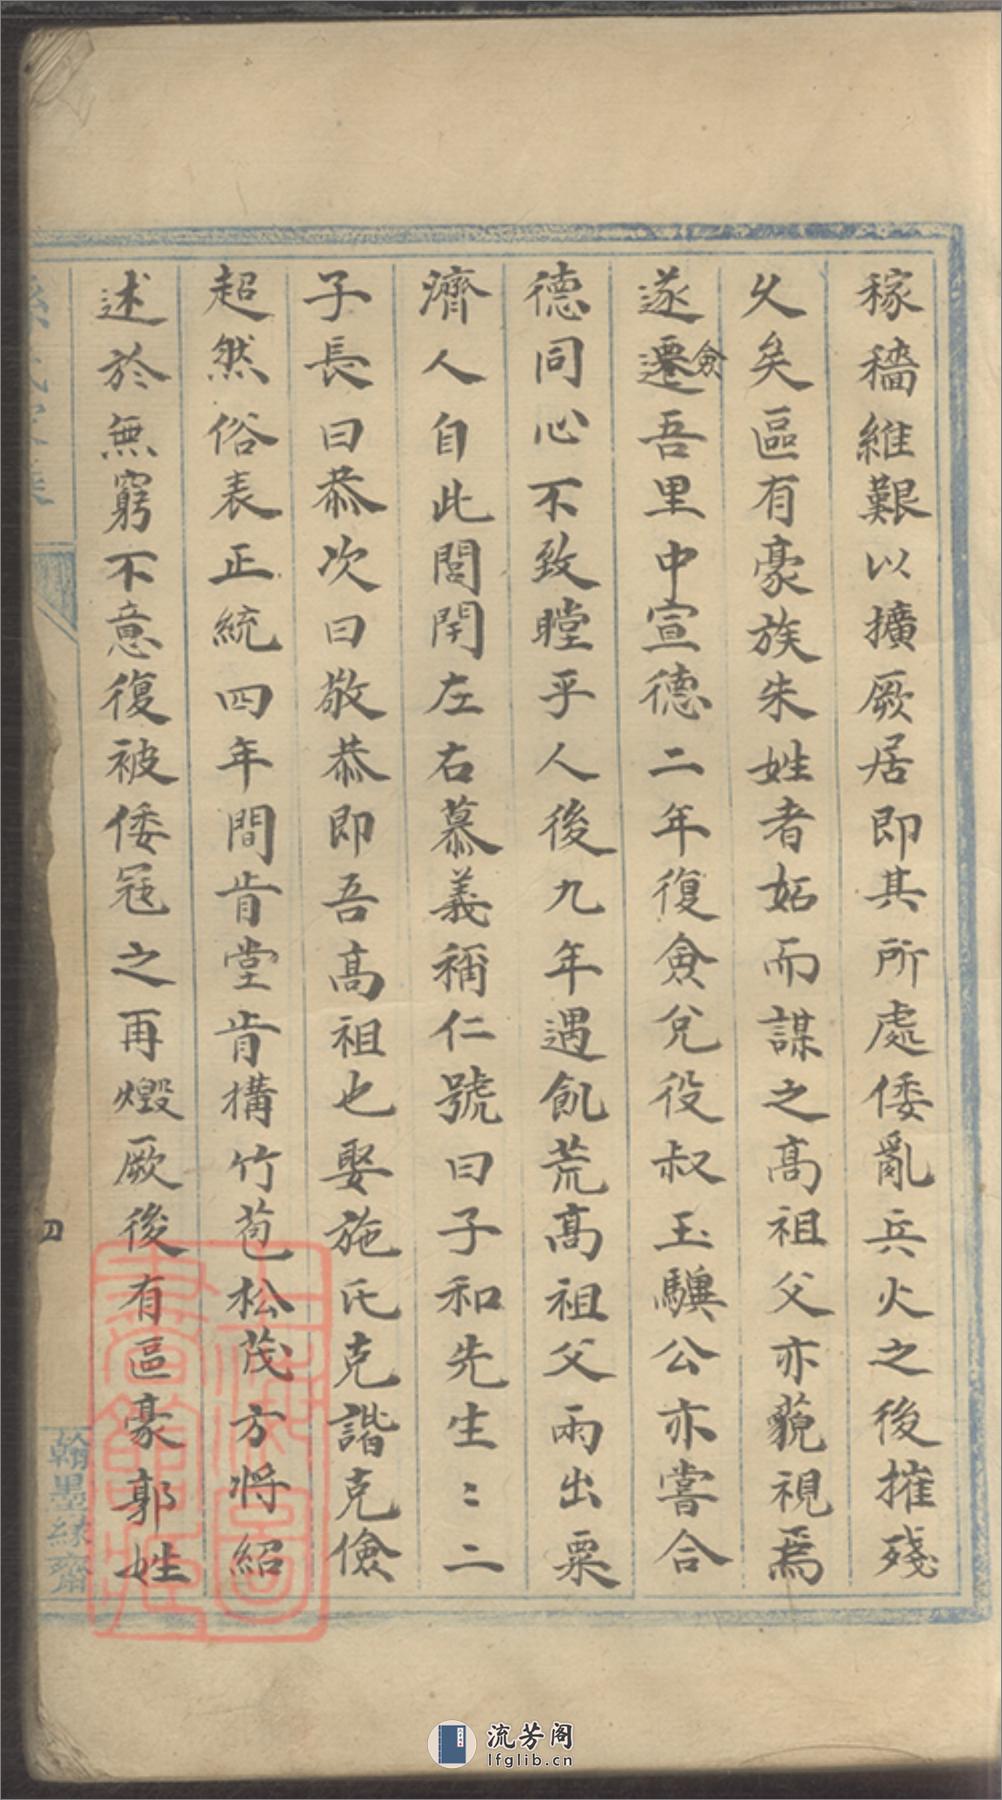 稼穡維艱以擴厥居即其所處倭亂兵火之後摧殘
乆矣區有豪族朱姓者妬而謀之髙祖父亦藐視焉
遂遷僉吾里中宣德二年復僉兊役叔玉驥公亦嘗合
德同心不致瞠乎人後九年遇飢荒髙祖父雨出粟
濟人自此閭閈左右慕義稱仁號曰子和先生〻二
子長曰恭次曰敬恭即吾髙祖也娶施氏克諧克儉
超然俗表正統四年間肯堂肯構竹苞松茂方將紹
述於無窮不意復被倭寇之再燬厥後有區豪郭姓
四
翰墨緣齋
流芳阁
lfglib.cn